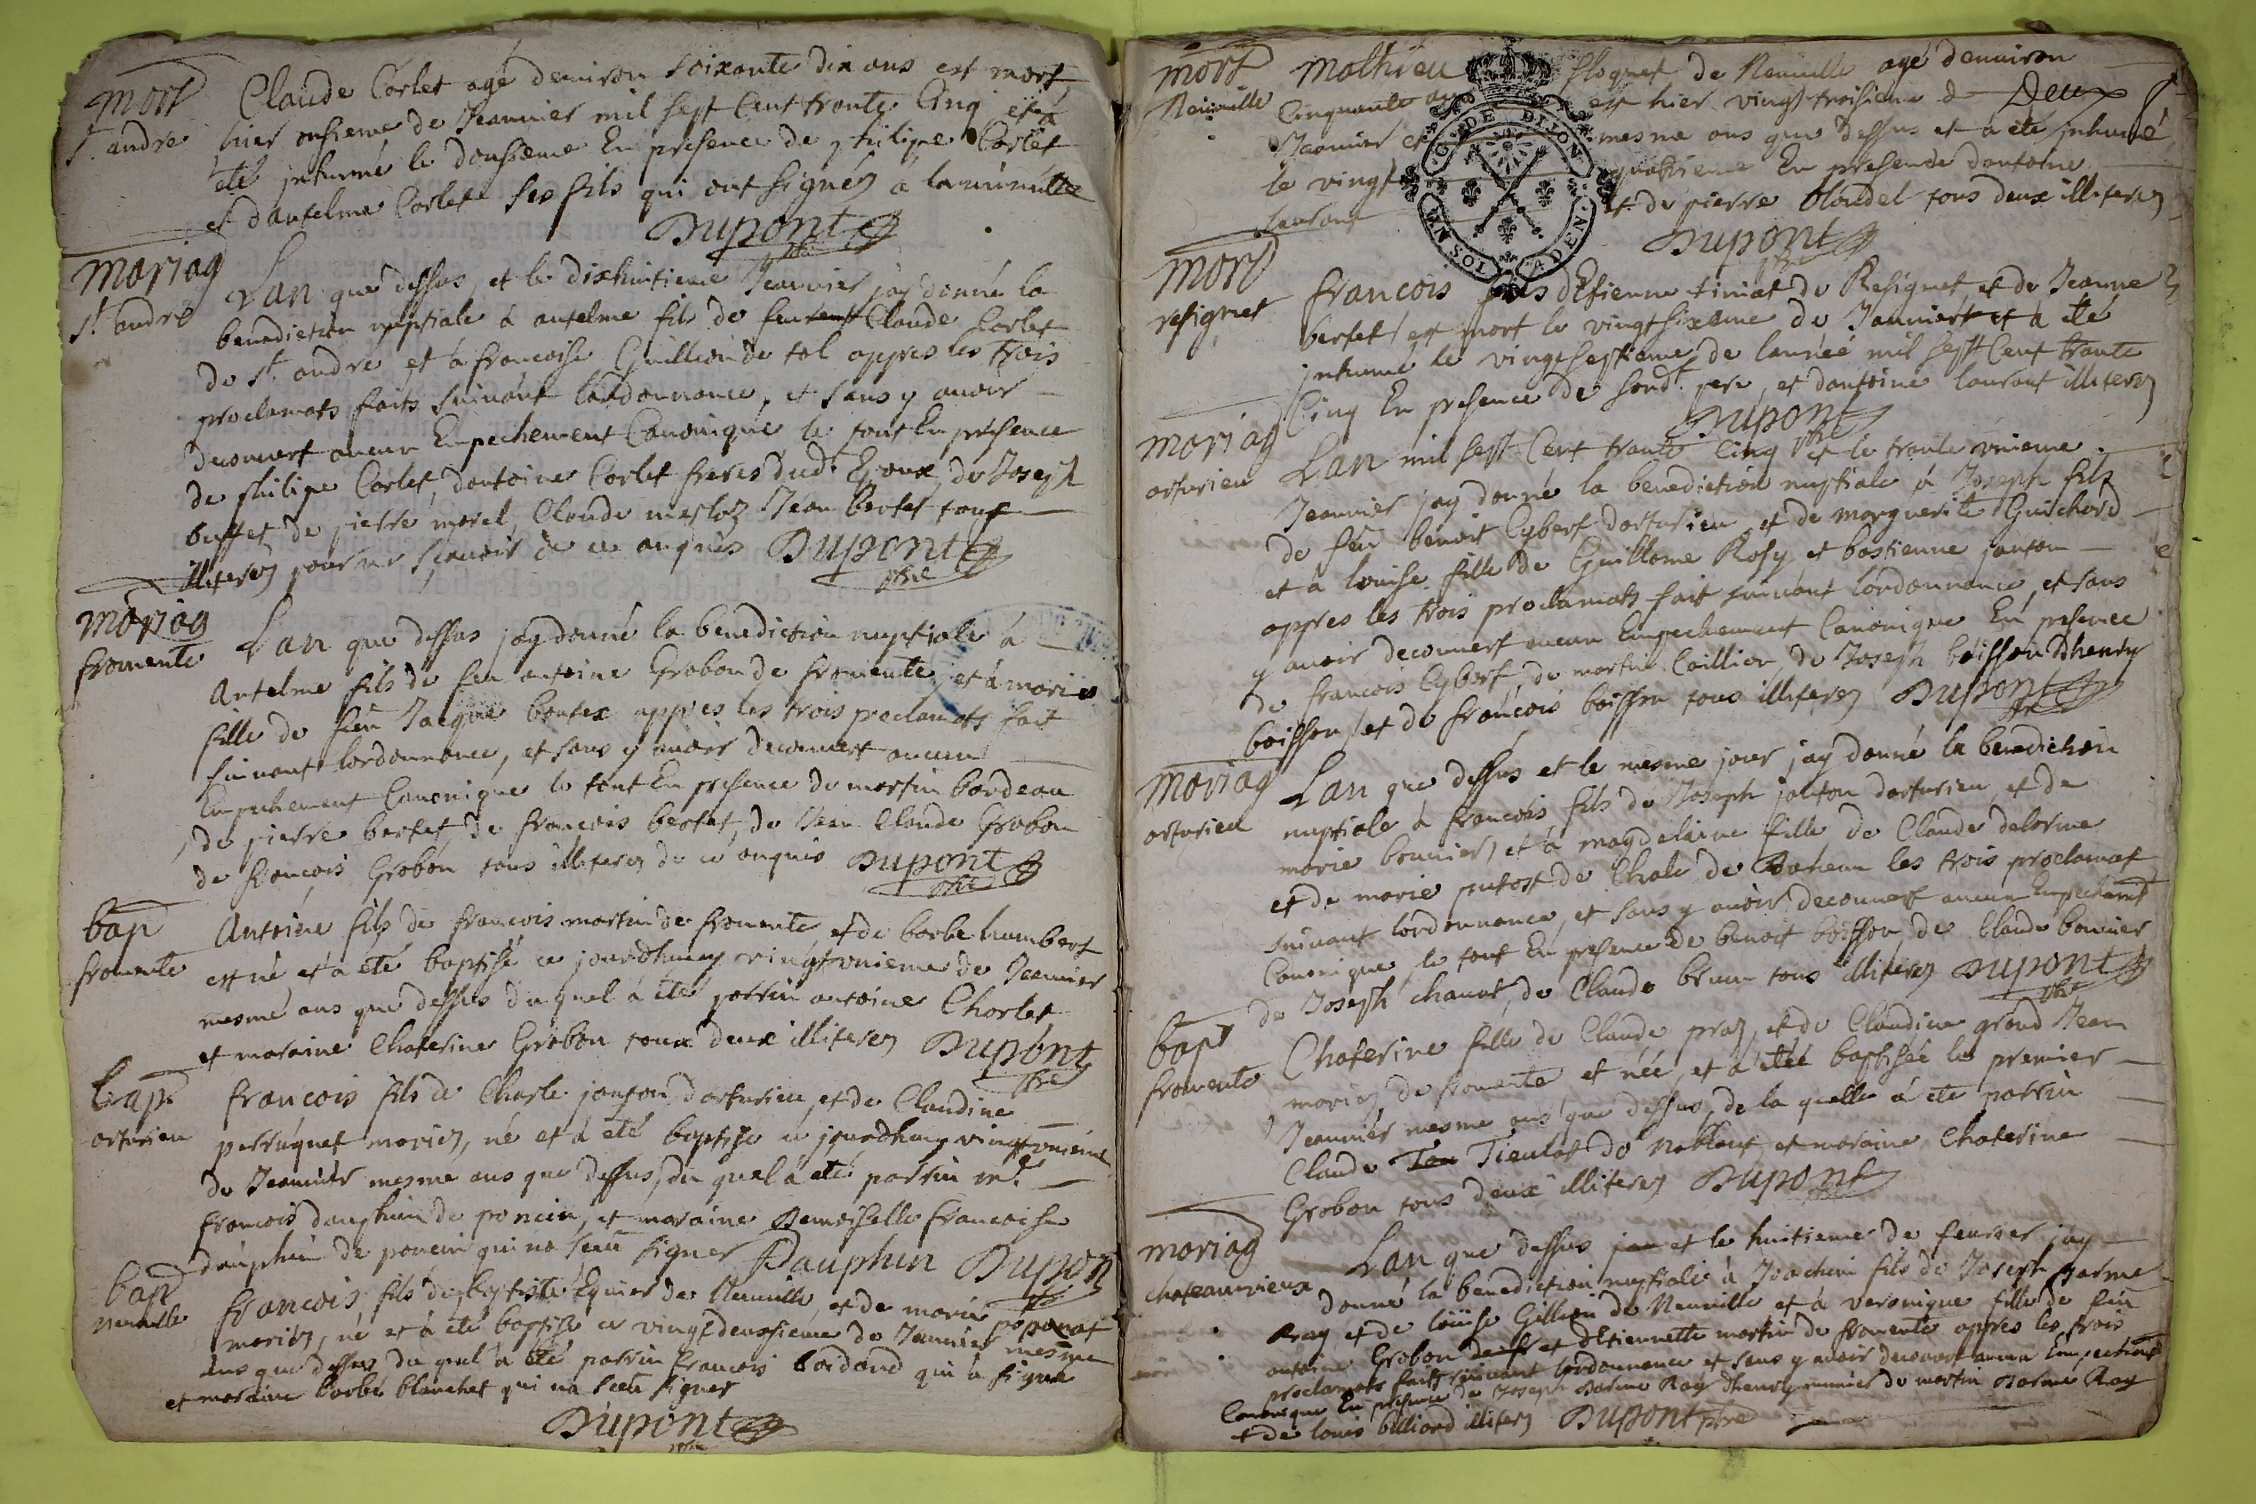 mort
st. andre
Claude Corlet agé denuiron soixante dix ans est mort
hier onsieme de Jeanuier mil sept Cent trante Cinq et á
été jnhumé le dousieme En presence de philipe Corlet
et dantelme Corlet ses fils qui ont signéz a laminútte
Dupont ptre
mariag
st. andré
Lan que dessus et le dixhuitieme Jeanuier jaÿ donné la
benediction nuptiale à antelme fils de feu Claude Corlet
de st. andre et à francoise Guillion de tol appres les trois
proclamats faits suiuant lordonnance, et sans y auoir
decouuert aucun Empechement Canonique le tout En présence
de philipe Corlet, dantoine Corlet freres dud. Epoux, de Joseph
buffet de pierre morel, Claude Jean bertet tous
illiterez pour ne scauoir de ce anquis Dupont ptre
mariag
fromente
Lan que dessus jay donné la benediction nuptiale à
Antelme fils de feu antoine Grobon de fromente, et à marie
fille de feu Jacque bontex appres les trois proclamats fait
suiuant lordonnance, et sans y auoir decouuert aucun
Empechement Canonique le tout En presence de martin bordeau
, de pierre bertet, de francois bertet, de Jean Claude Grobon
de francois Grobon tous illiterez de ce anquis Dupont ptre
bap
fromente
Antoine fils de francois martin de fromente et de barbe humbert
est né et à eté baptisé ce jourdhuuy vingt vnieme de Jeanuier
mesme ans que dessus du quel à eté parrin antoine Chorlet
et maraine Chaterine Grobon toux deux illiterez Dupont ptre
bap
arturieu
francois fils de Charle janton darturieu, et de Claudine
perruquet mariez, né et à eté baptisé ce jourdhuy vingt vnieme
de Jeanuier mesme ans que dessus, du quel à eté parrin mr.
francois dauphin de poncin, et maraine Demoiselle francoise
dauphin de poncin qui na seau signer Dauphin Dupont ptre
bap
neuuille
francois fils de baptiste Equier de Neuuille, et de marie poponat
mariez, né et à eté baptisé ce vingtdeusieme de Jeanuier mesme
ans que dessus du quel à eté parrin francois boidard qui à signé
et maraine barbe blanchet qui na sceu signer
Dupont ptre
mort
Neuuille
Mathieu floquet de Neuuille agé denuiron
Cinquante est hier vingt troisieme de Deux
Jeanuier mesme ans que dessus et à été jnhumé
le vingt quatrieme En presence dantoine
laurant et de pierre blondel tous deux illiterez
G. DE DIJON
Dupont ptre
mort
resignet
francois fils dEtienne tiniat de Resignet et de Jeanne
bertet, est mort le vingt sixieme de Januier et à été
jnhumé le vingt septieme de lannée mil sept Cent trante
Cinq En presence de sond. pere, et dantoine laurant illiterez
Dupont ptre
mariag
arturieu
Lan mil sept Cent trante Cinq et le trante vnieme
Jeanuier jay donné la benediction nuptiale à Joseph fils
de feu benoit Cybert darturieu, et de marguerite Guichard
et à louise fille de Guillome Rosy et bastienne janton
appres les trois proclamats fait suiuant lordonnance, et sans
y auoir decouuert aucun Empechement Canonique En presence
de francois Cybert, de martin Caillion, de Joseph boisson dhenry
boisson, et de francois boisson tous illiterez Dupont ptre
mariag
arturieu
Lan que dessus et le mesme jour jay donné la benediction
nuptiale à francois fils de Joseph janton darturieu, et de
marie bonnier, et à magdelaine fille de Claude delorme
et de marie putost de Chale de les trois proclamat
suiuant lordonnance, et sans y auoir decouuert aucun Empechement
Canonique, le tout En presence de benoit boisson, de Claude bonnier
de Joseph chanat, de Claude brun tous illiterez Dupont ptre
bap
fromente
Chaterine fille de Claude praz, et de Claudine grand Jean
mariez de fromente et née, et à etée baptisée le premier
Jeanuier mesme ans que dessus, de la quelle à ete parrin
Claude Tieulat de Noblant et maraine Chaterine
Grobon tous deux illiterez Dupont ptre
mariag
chateauvieux
Lan que dessus et le huitieme de feurier jay
donné la benediction nuptiale à Joachim fils de Joseph Darme
Ray et de loüise Gillion de Neuuille et à veronique fille de feu
antoine Grobon et dEtiennette martin de fromente appres les trois
proclamats faits suiuant lordonnance et sans y auoir decouuert aucun Empechement
Canonique En presence de Joseph Darme Ray dhenry munier de martin Darme Ray
et de louis billiard illiterz Dupont ptre